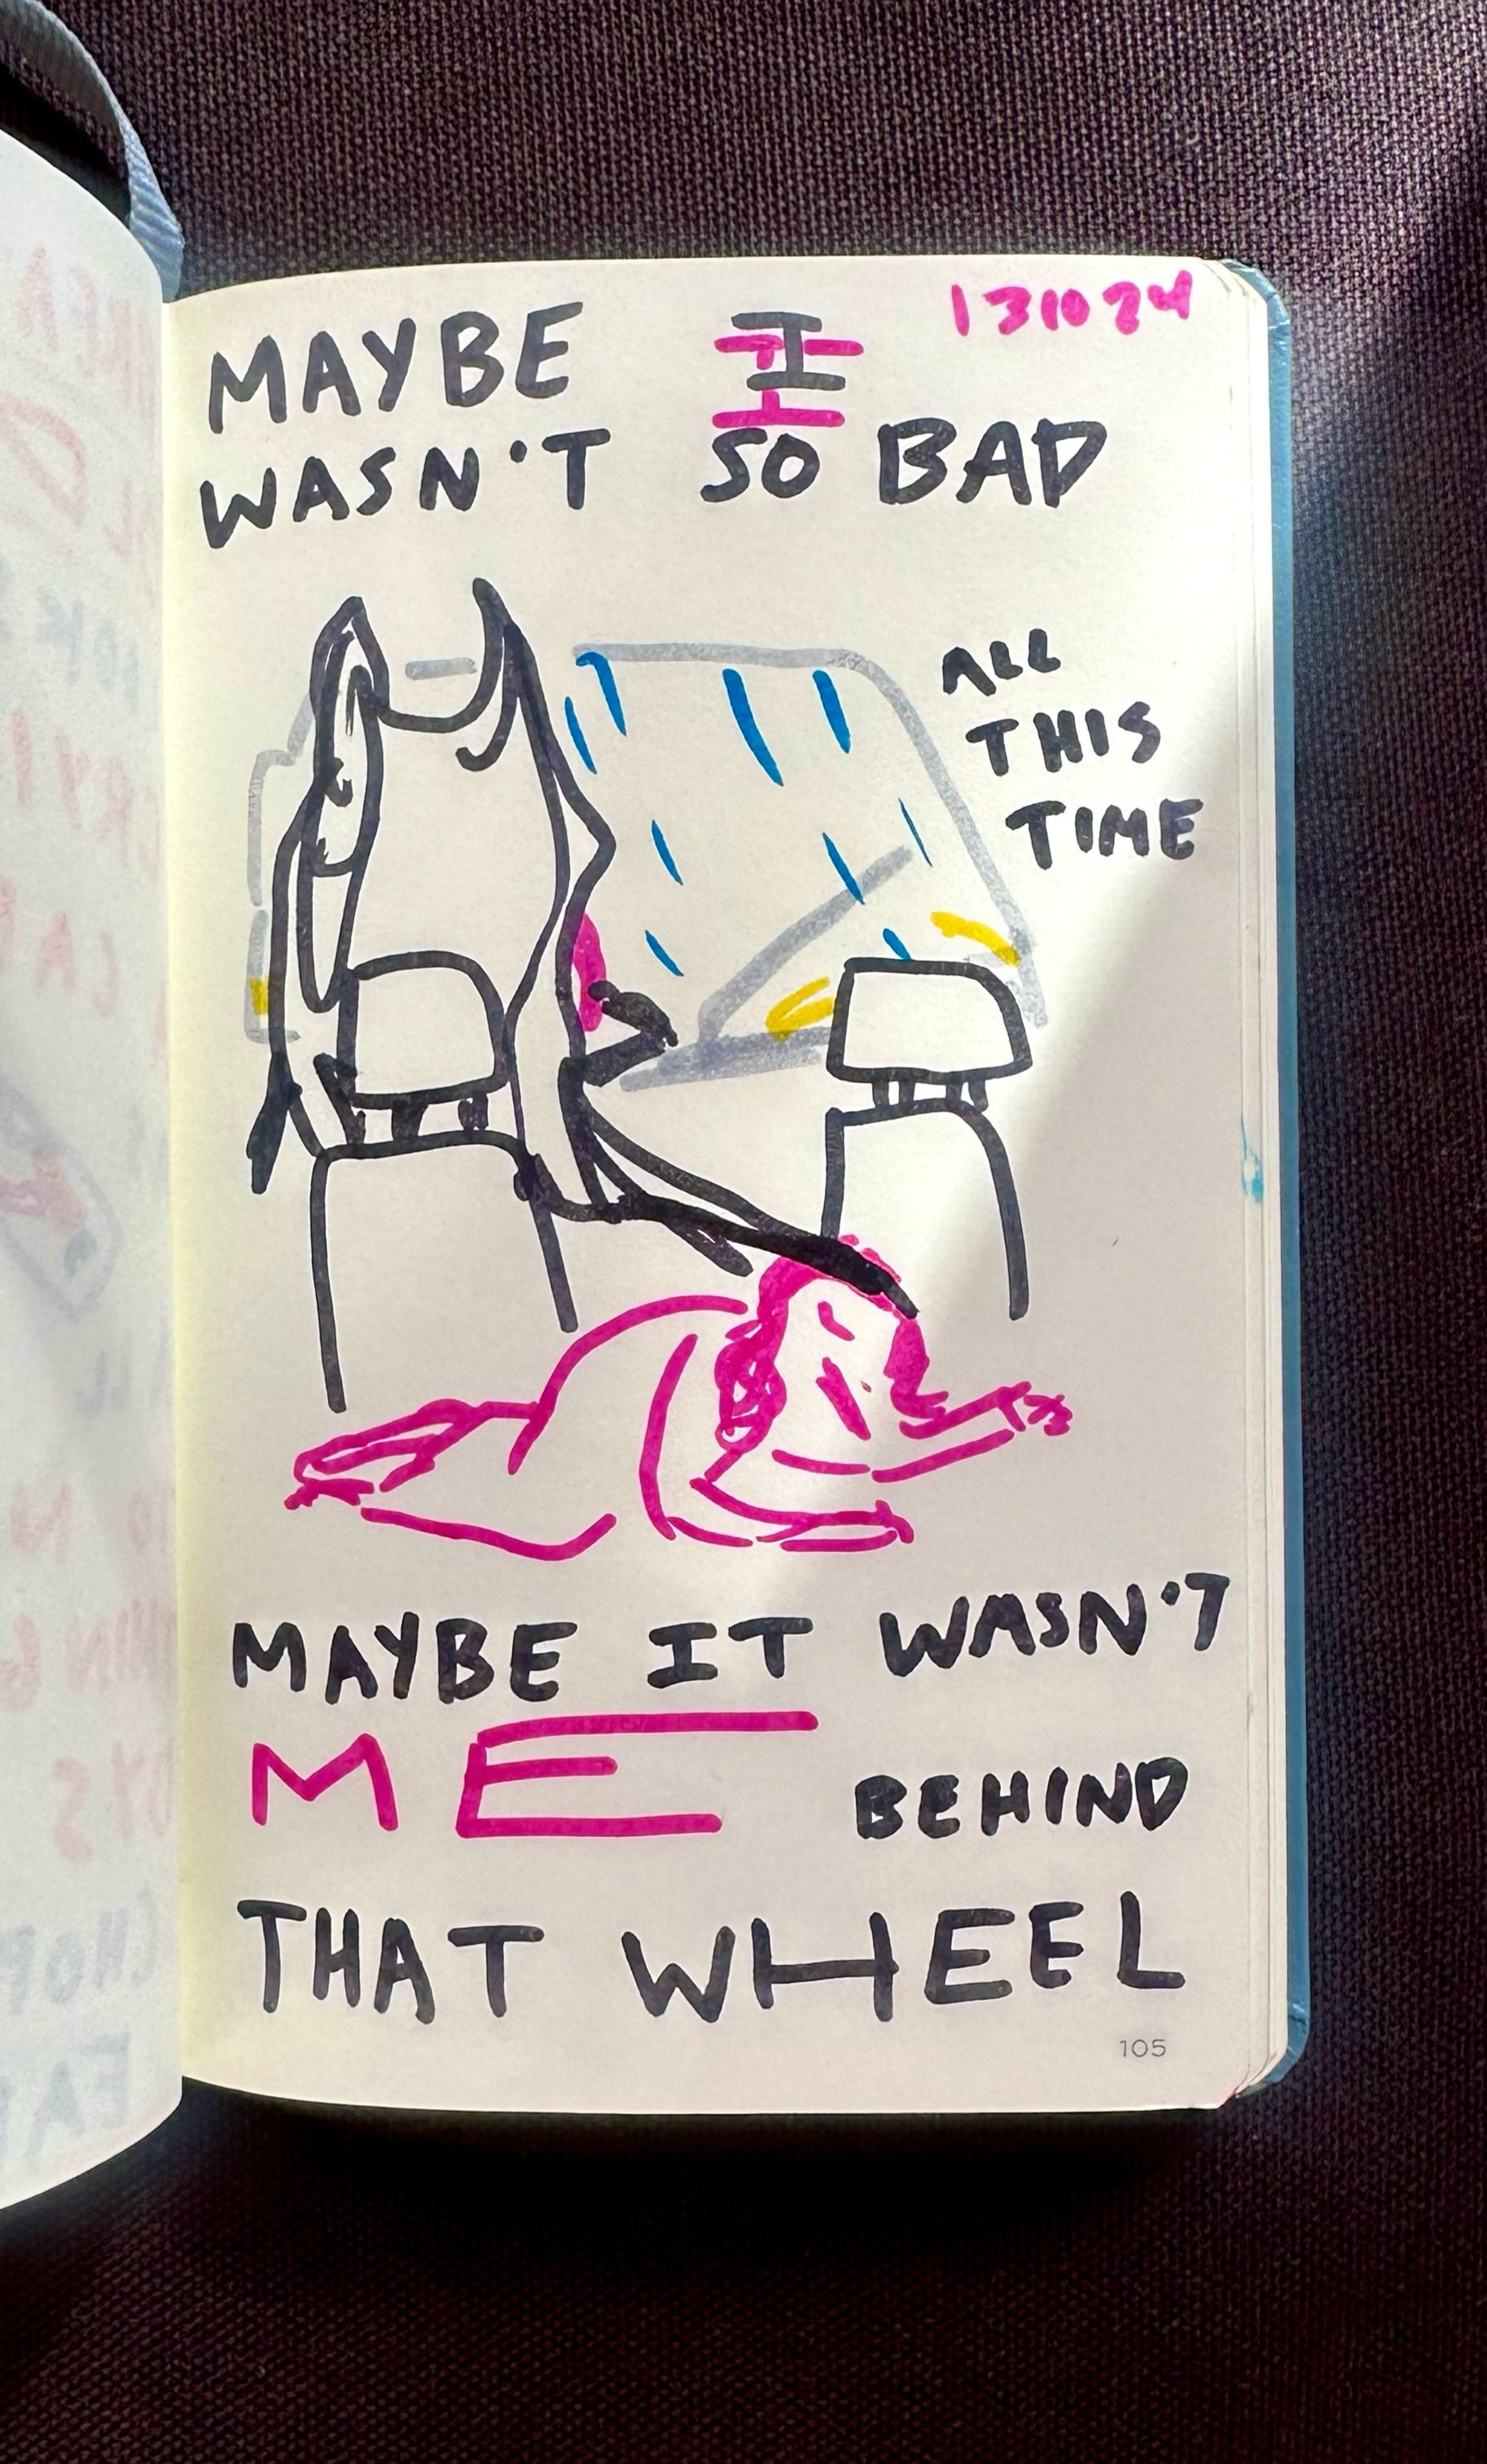 131024
MAYBE I
WASN'T SO BAD
ALL
THIS
TIME
MAYBE IT WASN'T
ME BEHIND
THAT WHEEL
105